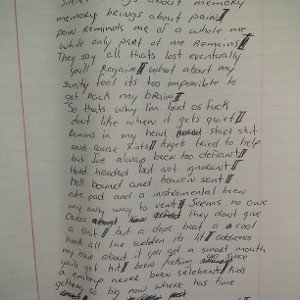 about memory
memory brings about pain//
pain reminds me of a whole me
while only part of me remains//
They say all thats lost eventually
you'll regain// what about my
sanity feel its too impossible to
get back my brain//
So thats why Im loud as fuck
dont like where it gets quiet//
Demons in my head start shit
and cause riots// Angels tried to help
but Ive always been too defiant//
Hard headed but not ignorant//
hell bound and heaven sent//
note pad and a instremental been
my only way to vent// Seems no one
Cares they dont give
a shit// but a dope beat a cool
hook all the sudden its lit// address
my about it you got a smart mouth
you'll get hit// been feeling
a embryo never been celebent// Kids
getting to big now where has time